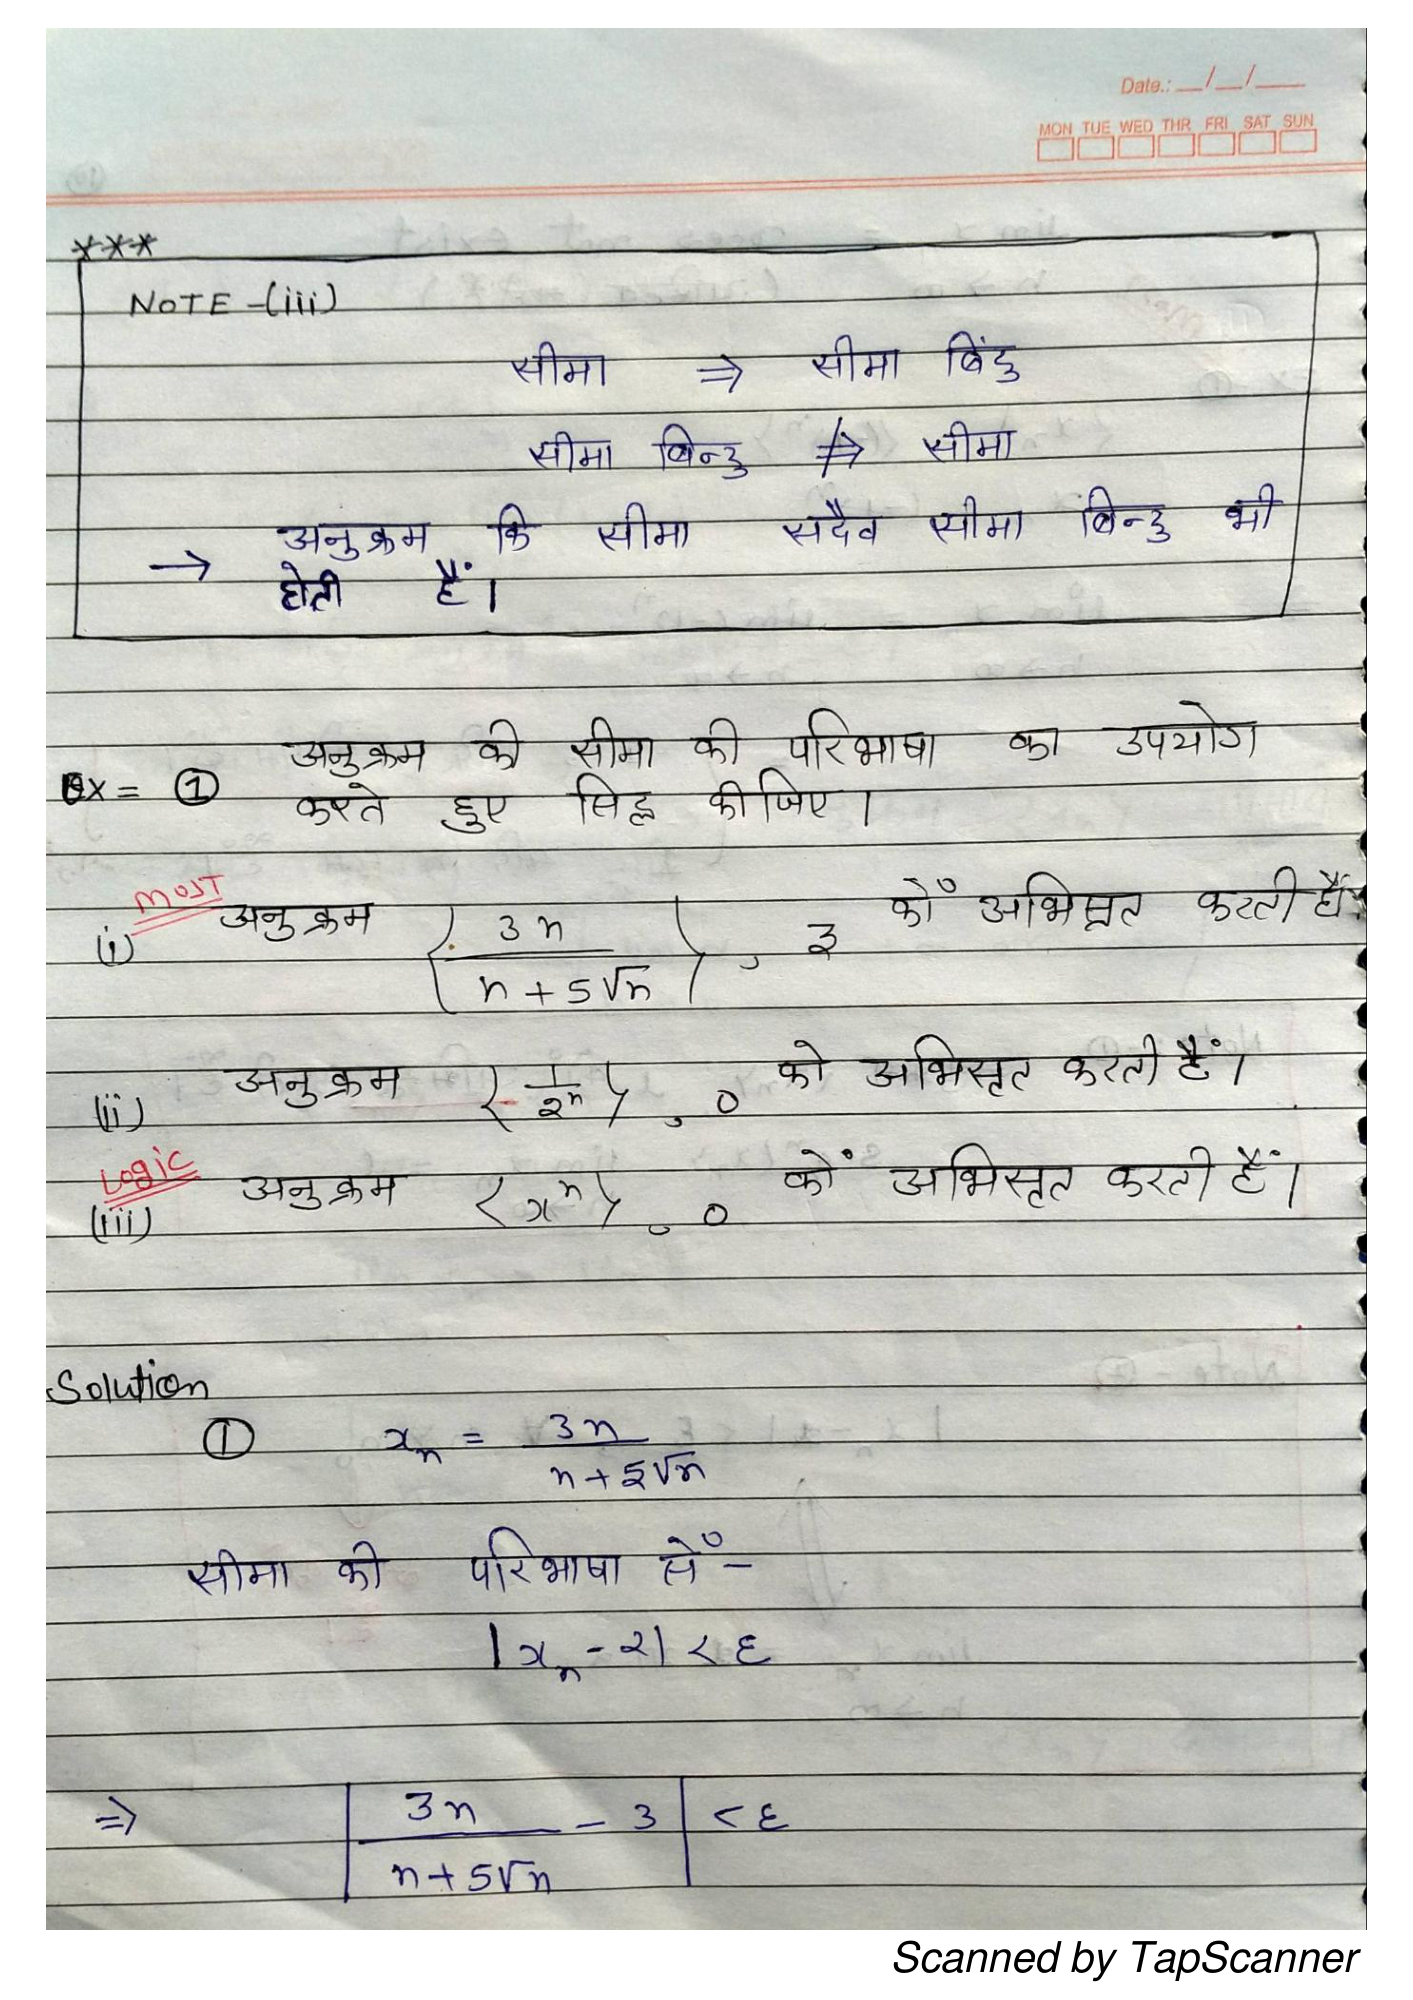 Date.: __/__/____
MON TUE WED THR FRI SAT SUN
***
NOTE -(iii)
सीमा ⇒ सीमा बिंदु
सीमा बिन्दु ⇏ सीमा
→ अनुक्रम कि सीमा सदैव सीमा बिन्दु भी
होती हैं।
Ex = ① अनुक्रम की सीमा की परिभाषा का उपयोग
करते हुए सिद्ध कीजिए।
most
(i) अनुक्रम ⟨ 3n / n + 5√n ⟩, 3 कों अभिसृत करती हैं।
(ii) अनुक्रम ⟨ 1 / 2ⁿ ⟩, 0 को अभिसृत करती हैं।
Logic
(iii) अनुक्रम ⟨ xⁿ ⟩, 0 कों अभिसृत करती हैं।
Solution
① xₙ = 3n / n + 5√n
सीमा की परिभाषा सें -
|xₙ - 2| < ε
⇒ | 3n / n + 5√n - 3 | < ε
Scanned by TapScanner